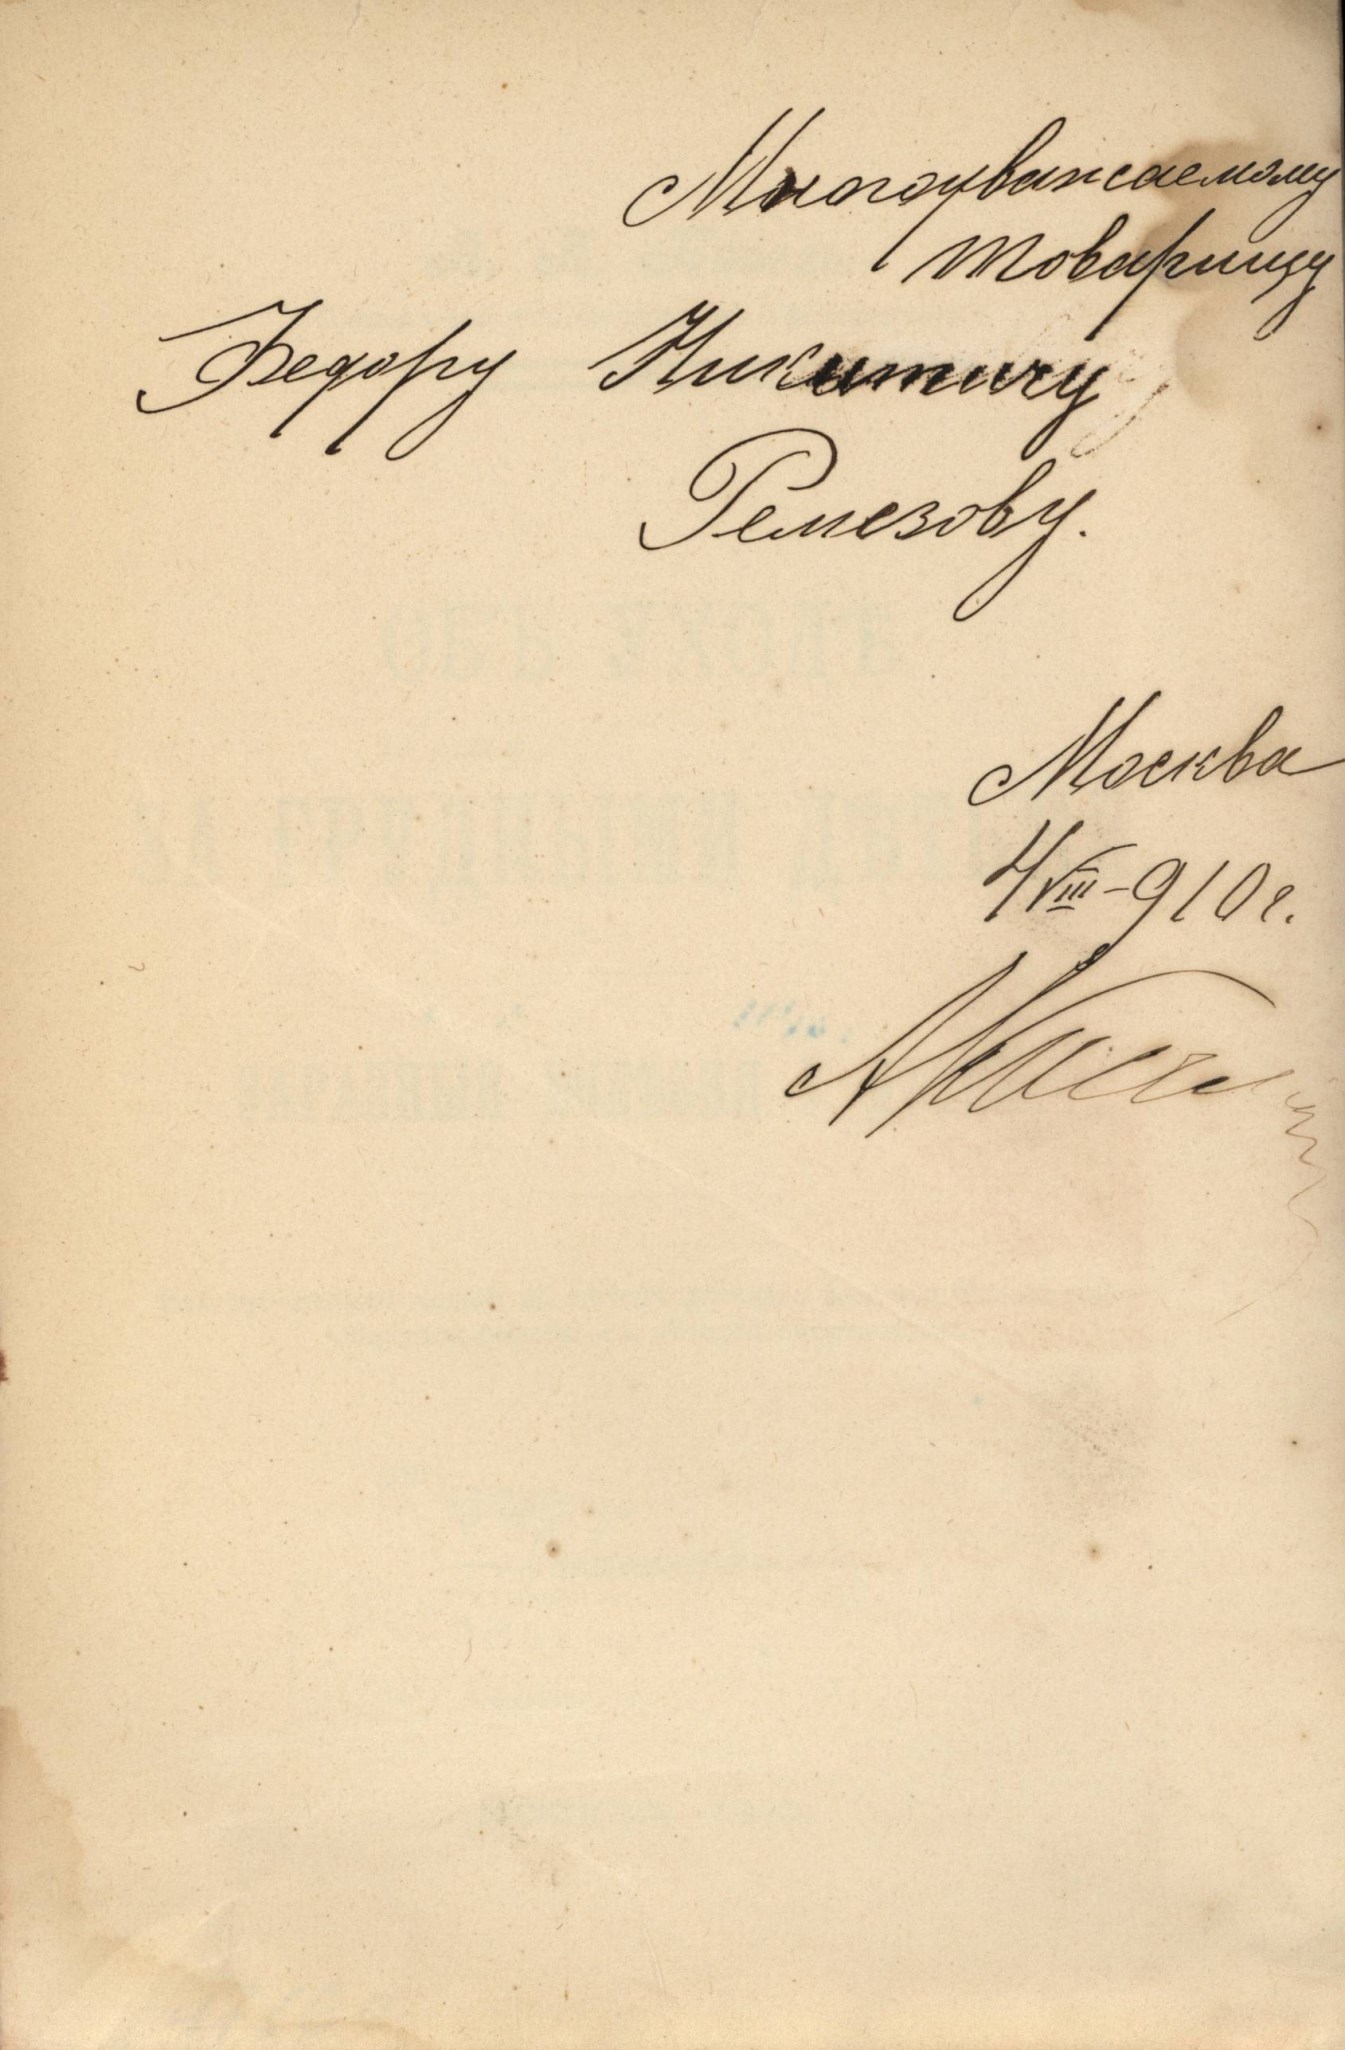 Многоуважаемому
товарищу
Федору Никитичу
Ремезову.
Москва
4 VIII – 910 г.